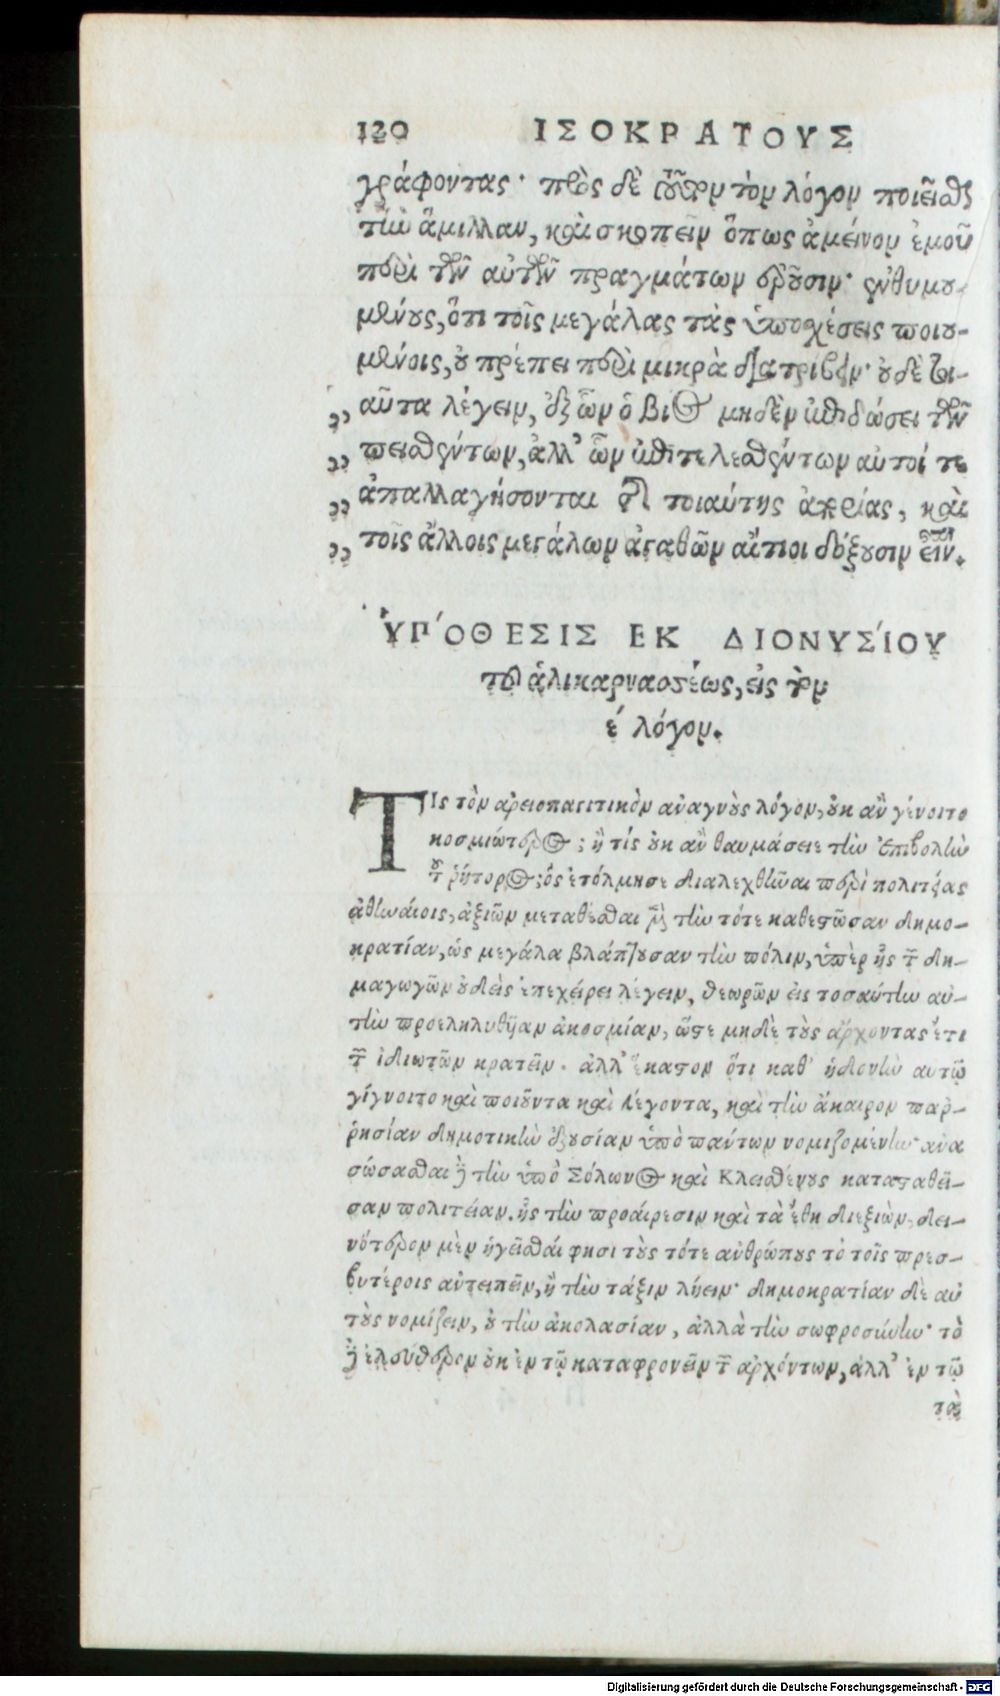 120 ΙΣΟΚΡΑΤΟΥΣ
γράφοντας· πρὸς δὲ τοῦτον τὸν λόγον ποιεῖσθαι
τὴν ἅμιλλαν, καὶ σκοπεῖν ὅπως ἀμείνον ἐμοῦ
περὶ τῶν αὐτῶν πραγμάτων ἐροῦσιν· ἐνθυμου-
μένους, ὅτι τοῖς μεγάλας τὰς ὑποσχέσεις ποιου-
μένοις, οὐ πρέπει περὶ μικρὰ διατρίβειν· οὐδὲ τοι-
αῦτα λέγειν, ἐξ ὧν ὁ βίος μηδὲν ἐπιδώσει τῶν
πεισθέντων, ἀλλ' ὧν ἐπιτελεσθέντων αὐτοί τε
ἀπαλλαγήσονται τῆς τοιαύτης ἀπορίας, καὶ
τοῖς ἄλλοις μεγάλων ἀγαθῶν αἴτιοι δόξουσιν εἶναι.
ὙΠΌΘΕΣΙΣ ΕΚ ΔΙΟΝΥΣΊΟΥ
τοῦ ἁλικαρνασσέως, εἰς τὸν
έ λόγον.
ΤΙς τὸν ἀρειοπαγιτικὸν ἀναγνοὺς λόγον, οὐκ ἂν γένοιτο
κοσμιώτερος; ἢ τίς οὐκ ἂν θαυμάσειε τὴν ἐπιβολὴν
τοῦ ῥήτορος; ὃς ἐτόλμησε διαλεχθῆναι περὶ πολιτείας
ἀθηναίοις, ἀξιῶν μεταθέσθαι μὲν τὴν τότε καθεστῶσαν δημο-
κρατίαν, ὡς μεγάλα βλάπτουσαν τὴν πόλιν, ὑπὲρ ἧς τῶν δη-
μαγωγῶν οὐδεὶς ἐπεχείρει λέγειν, θεωρῶν εἰς τοσαύτην αὐ-
τὴν προεληλυθυῖαν ἀκοσμίαν, ὥστε μηδὲ τοὺς ἄρχοντας ἔτι
τῶν ἰδιωτῶν κρατεῖν. ἀλλ' ἕκαστον ὅτι καθ' ἡδονὴν αυτῷ
γίγνοιτο καὶ ποιοῦντα καὶ λέγοντα, καὶ τὴν ἄκαιρον παρ-
ρησίαν δημοτικὴν ἐξουσίαν ὑπὸ πάντων νομιζομένην· ἀνα
σώσασθαι δὲ τὴν ὑπὸ Σόλωνος καὶ Κλεισθένους κατασταθεῖ-
σαν πολιτείαν. ἧς τὴν προαίρεσιν καὶ τὰ ἔθη διεξιὼν, δει-
νότερον μὲν ἡγεῖσθαί φησι τοὺς τότε ἀνθρώπους τὸ τοῖς πρεσ-
βυτέροις ἀντειπεῖν, ἢ τὴν τάξιν λύειν· δημοκρατίαν δὲ αὐ
τοὺς νομίζειν, οὐ τὴν ἀκολασίαν, ἀλλὰ τὴν σωφροσύνην· τὸ
δὲ ἐλεύθερον οὐκ ἐν τῷ καταφρονεῖν τῶν ἀρχόντων, ἀλλ' ἐν τῷ
τὰ
Digitalisierung gefördert durch die Deutsche Forschungsgemeinschaft - DFG